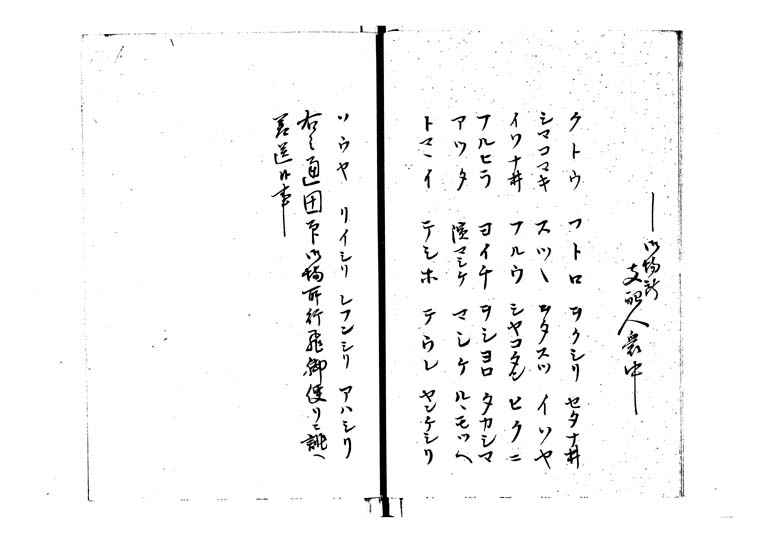 御場所
支配人衆中
クトウ フトロ ヲクシリ セタナ井
シマコマキ スツヽ ヲタスツ イソヤ
イワナ井 フルウ シヤコタン ヒクニ
フルヒラ ヨイチ ヲシヨロ タカシマ
アツタ 濱マシケ マシケ ルヽモツヘ
トマヽイ テシホ テウレ ヤンケシリ
ソウヤ リイシリ レフンシリ アハシリ
右之通 御場所行飛脚便リニ誂ヘ
差送候事